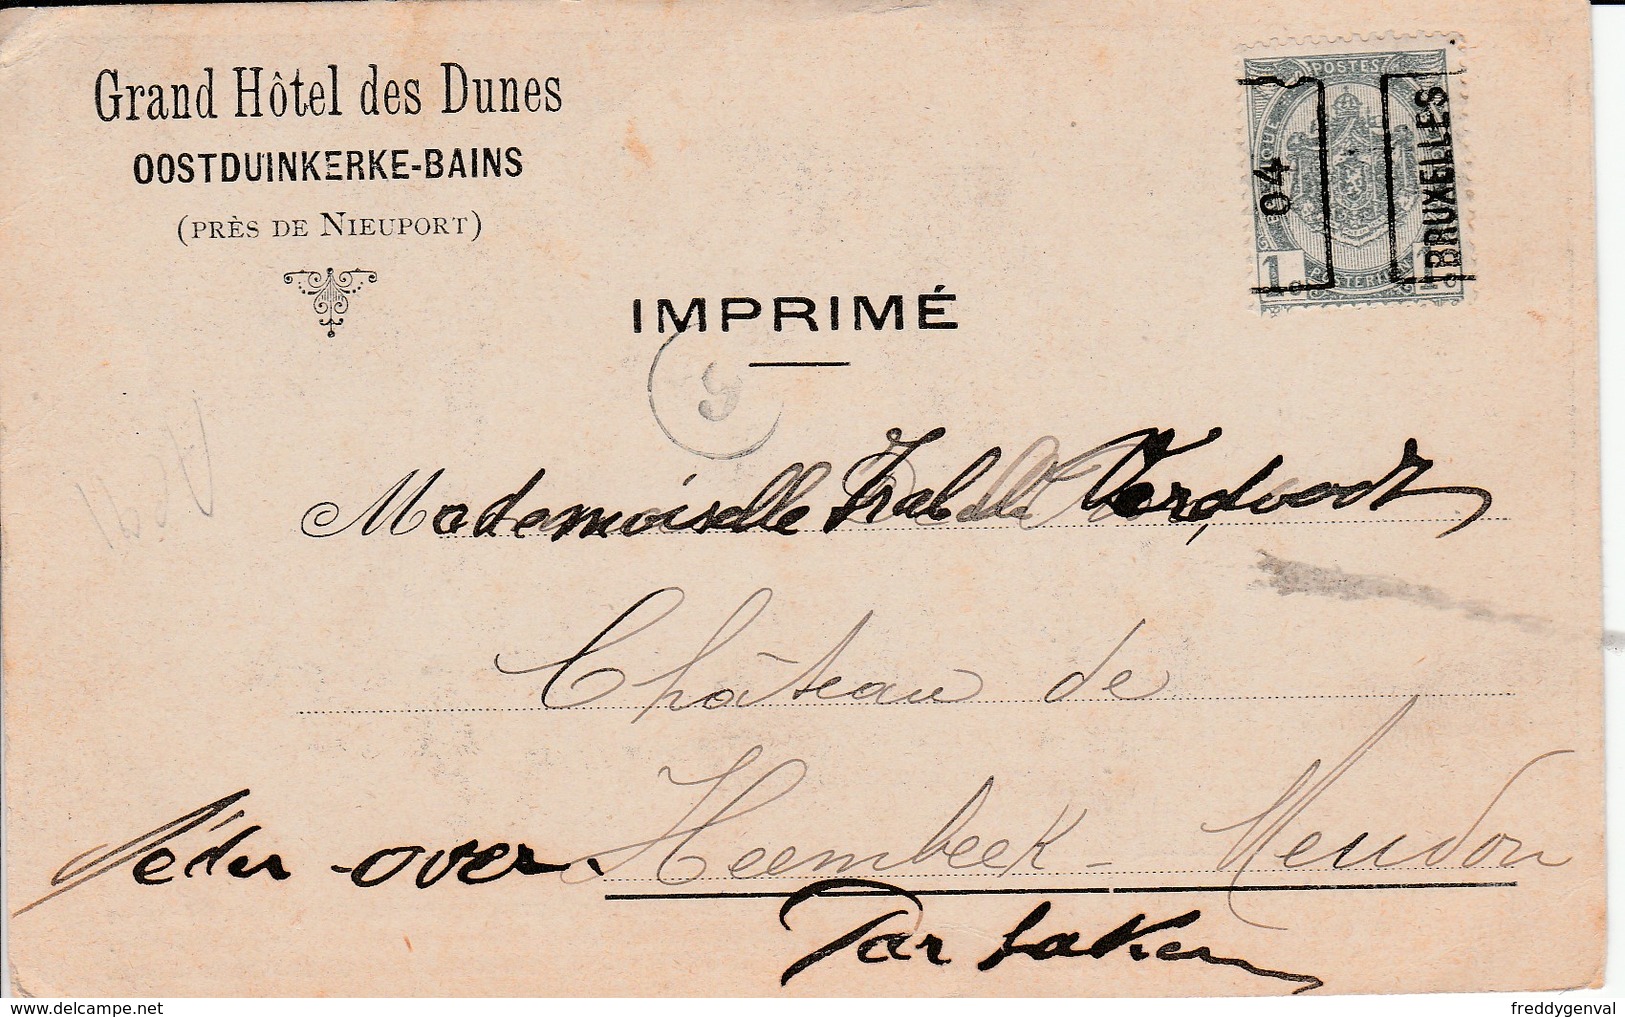 Grand Hôtel des Dunes
OOSTDUINKERKE-BAINS
(PRÈS DE NIEUPORT)
POSTES
04
BRUXELLES
1
1
IMPRIMÉ
Mademoiselle Verdvoodt
Château de
Heembeek - Meudon
Néder-over
Par Laken
delcampe.net
freddygenval